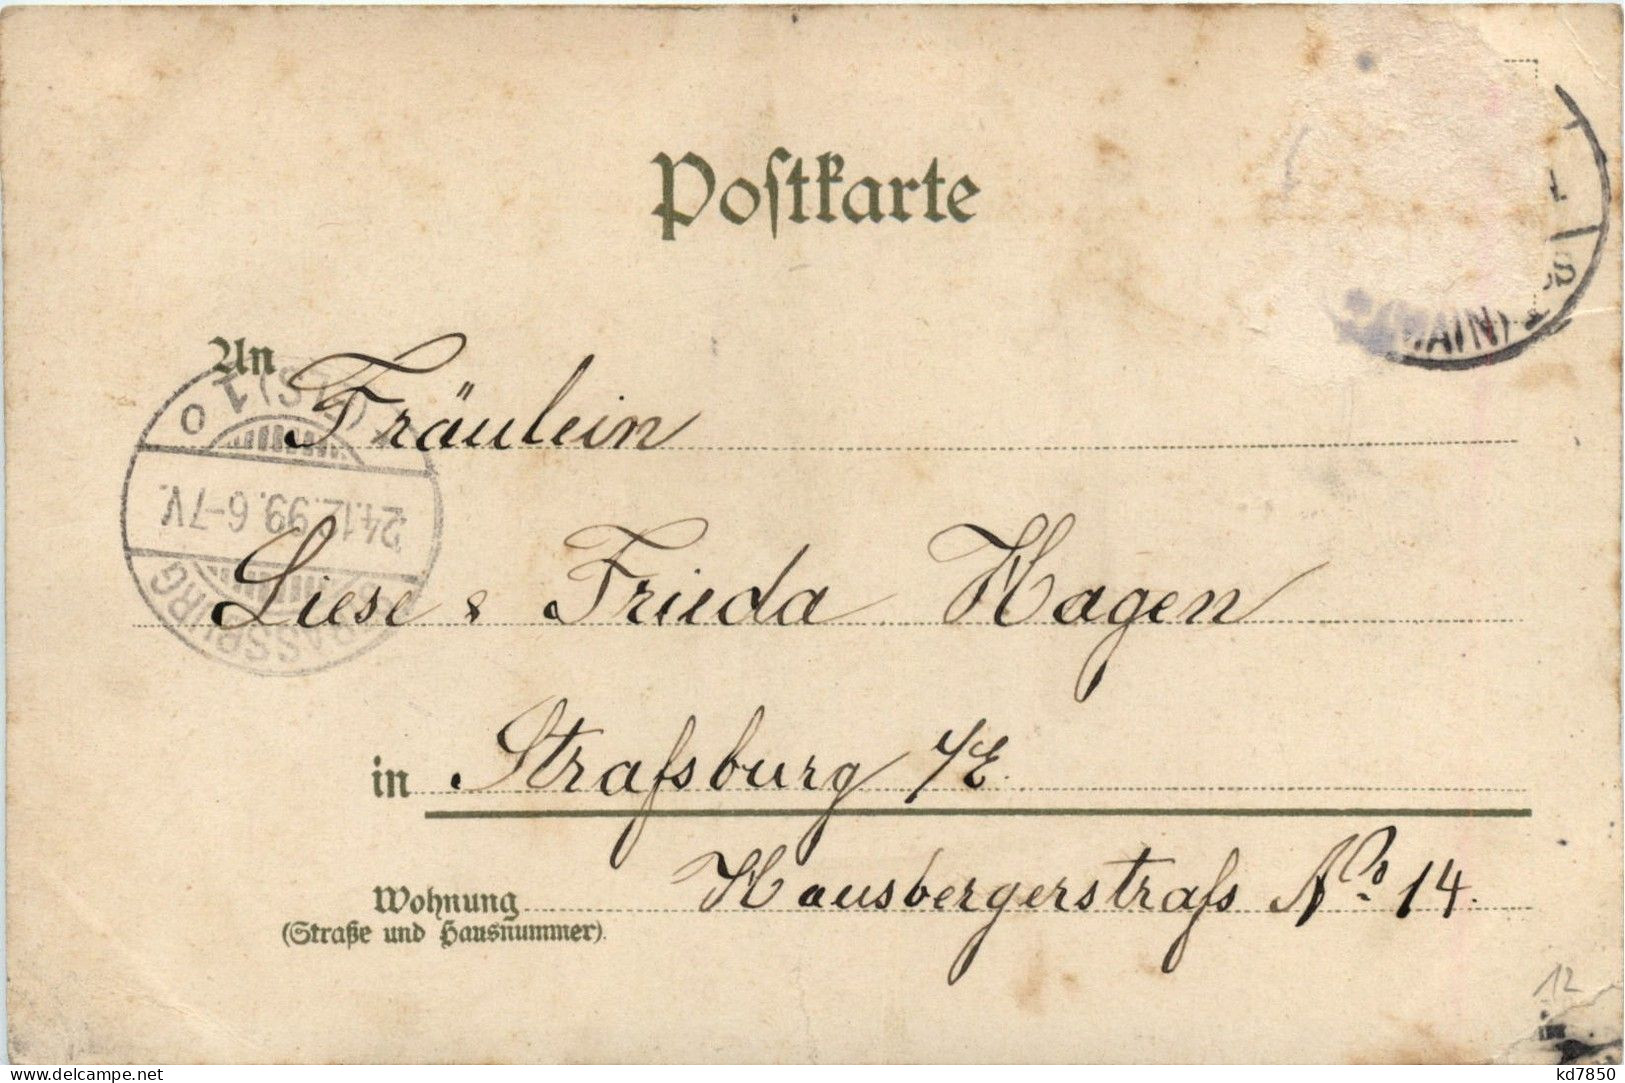 Postkarte
(MAIN)
An Fräulein
(ELS) 1 o
24.12.99. 6-7V.
STRASSBURG
Liese & Frieda Hagen
in Strafsburg i/E.
Hausbergerstrafs No. 14.
Wohnung
(Straße und Hausnummer).
12
delcampe.net
kd7850